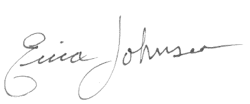 Erica Johnson